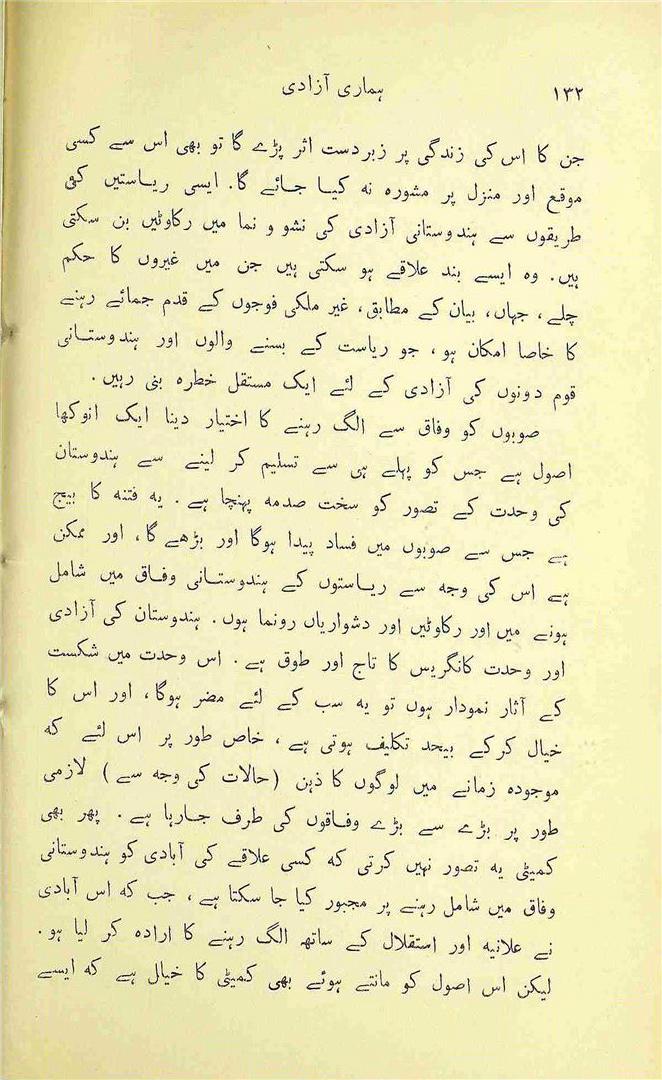 ۱۳۲
ہماری آزادی
جن کا اس کی زندگی پر زبردست اثر پڑے گا تو بھی اس سے کسی
موقع اور منزل پر مشورہ نہ کیا جائے گا۔ ایسی ریاستیں کئی
طریقوں سے ہندوستانی آزادی کی نشو و نما میں رکاوٹیں بن سکتی
ہیں۔ وہ ایسے بند علاقے ہو سکتی ہیں جن میں غیروں کا حکم
چلے، جہاں، بیان کے مطابق، غیر ملکی فوجوں کے قدم جمائے رہنے
کا خاصا امکان ہو، جو ریاست کے بسنے والوں اور ہندوستانی
قوم دونوں کی آزادی کے لئے ایک مستقل خطرہ بنی رہیں۔
صوبوں کو وفاق سے الگ رہنے کا اختیار دینا ایک انوکھا
اصول ہے جس کو پہلے ہی سے تسلیم کر لینے سے ہندوستان
کی وحدت کے تصور کو سخت صدمہ پہنچا ہے۔ یہ فتنہ کا بیج
ہے جس سے صوبوں میں فساد پیدا ہوگا اور بڑھے گا، اور ممکن
ہے اس کی وجہ سے ریاستوں کے ہندوستانی وفاق میں شامل
ہونے میں اور رکاوٹیں اور دشواریاں رونما ہوں۔ ہندوستان کی آزادی
اور وحدت کانگریس کا تاج اور طوق ہے۔ اس وحدت میں شکست
کے آثار نمودار ہوں تو یہ سب کے لئے مضر ہوگا، اور اس کا
خیال کرکے بیحد تکلیف ہوتی ہے، خاص طور پر اس لئے کہ
موجودہ زمانے میں لوگوں کا ذہن (حالات کی وجہ سے) لازمی
طور پر بڑے سے بڑے وفاقوں کی طرف جارہا ہے۔ پھر بھی
کمیٹی یہ تصور نہیں کرتی کہ کسی علاقے کی آبادی کو ہندوستانی
وفاق میں شامل رہنے پر مجبور کیا جا سکتا ہے، جب کہ اس آبادی
نے علانیہ اور استقلال کے ساتھ الگ رہنے کا ارادہ کر لیا ہو۔
لیکن اس اصول کو مانتے ہوئے بھی کمیٹی کا خیال ہے کہ ایسے